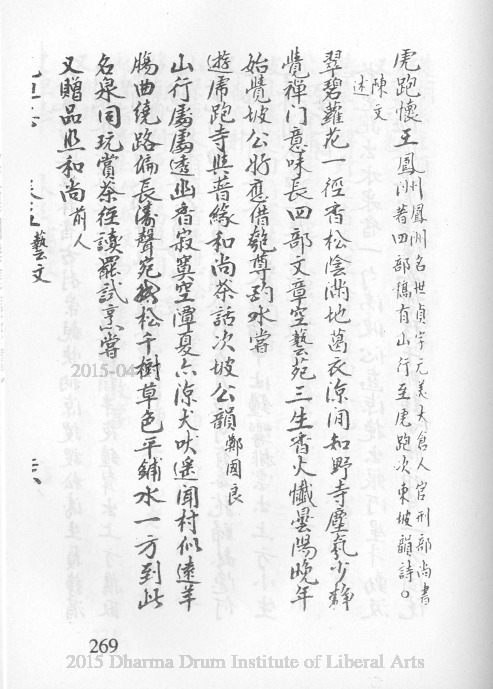 虎跑懷王鳳洲
鳳洲名世貞字元美大倉人官刑部尚書
著四部稿有山行至虎跑次東坡韻詩。
陳文
述
翠碧蘿花一徑香松陰滿地葛衣涼閒知野寺塵氛少靜
覺禅门意味長四部文章空藝苑三生香火懺曇陽晚年
始覺坡公好應借匏尊酌水嘗
遊虎跑寺與普緣和尚茶話次坡公韻 鄭國良
山行處處透幽香寂寞空潭夏亦涼犬吠遙聞村似遠羊
腸曲繞路偏長濤聲宛轉松千樹草色平鋪水一方到此
名泉同玩賞茶經讀罷試烹嘗
又贈品照和尚 前人
藝文
269
2015-04
2015 Dharma Drum Institute of Liberal Arts